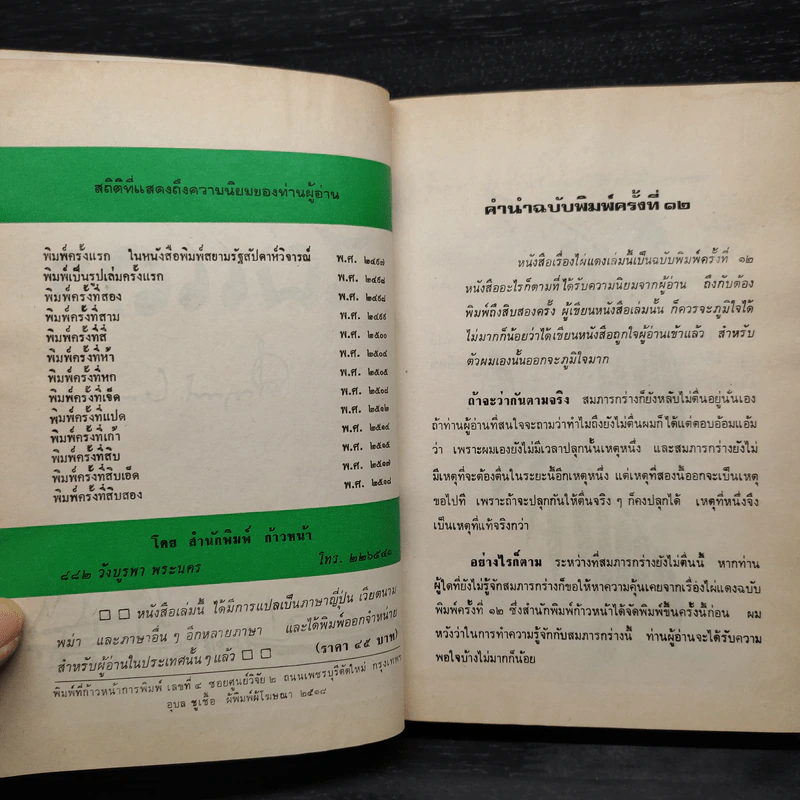 สถิติที่แสดงถึงความนิยมของท่านผู้อ่าน
พิมพ์ครั้งแรก ในหนังสือพิมพ์สยามรัฐสัปดาห์วิจารณ์ พ.ศ. ๒๔๙๗
พิมพ์เป็นรูปเล่มครั้งแรก พ.ศ. ๒๔๙๘
พิมพ์ครั้งที่สอง พ.ศ. ๒๔๙๘
พิมพ์ครั้งที่สาม พ.ศ. ๒๔๙๙
พิมพ์ครั้งที่สี่ พ.ศ. ๒๕๐๐
พิมพ์ครั้งที่ห้า พ.ศ. ๒๕๐๔
พิมพ์ครั้งที่หก พ.ศ. ๒๕๐๕
พิมพ์ครั้งที่เจ็ด พ.ศ. ๒๕๐๘
พิมพ์ครั้งที่แปด พ.ศ. ๒๕๑๒
พิมพ์ครั้งที่เก้า พ.ศ. ๒๕๑๔
พิมพ์ครั้งที่สิบ พ.ศ. ๒๕๑๕
พิมพ์ครั้งที่สิบเอ็ด พ.ศ. ๒๕๑๗
พิมพ์ครั้งที่สิบสอง พ.ศ. ๒๕๑๘
โดย สำนักพิมพ์ ก้าวหน้า
๘๘๒ วังบูรพา พระนคร โทร. ๒๒๖๕๔๑
□ □ หนังสือเล่มนี้ ได้มีการแปลเป็นภาษาญี่ปุ่น เวียดนาม
พม่า และภาษาอื่น ๆ อีกหลายภาษา และได้พิมพ์ออกจำหน่าย
สำหรับผู้อ่านในประเทศนั้น ๆ แล้ว □ □ (ราคา ๔๕ บาท)
พิมพ์ที่ก้าวหน้าการพิมพ์ เลขที่ ๔ ซอยศูนย์วิจัย ๒ ถนนเพชรบุรีตัดใหม่ กรุงเทพฯ
อุบล ชูเชื้อ ผู้พิมพ์ผู้โฆษณา ๒๕๑๘
คำนำฉบับพิมพ์ครั้งที่ ๑๒
หนังสือเรื่องไผ่แดงเล่มนี้เป็นฉบับพิมพ์ครั้งที่ ๑๒
หนังสืออะไรก็ตามที่ได้รับความนิยมจากผู้อ่าน ถึงกับต้อง
พิมพ์ถึงสิบสองครั้ง ผู้เขียนหนังสือเล่มนั้น ก็ควรจะภูมิใจได้
ไม่มากก็น้อยว่าได้เขียนหนังสือถูกใจผู้อ่านเข้าแล้ว สำหรับ
ตัวผมเองนั้นออกจะภูมิใจมาก
ถ้าจะว่ากันตามจริง สมภารกร่างก็ยังหลับไม่ตื่นอยู่นั่นเอง
ถ้าท่านผู้อ่านที่สนใจจะถามว่าทำไมถึงยังไม่ตื่นผมก็ได้แต่ตอบอ้อมแอ้ม
ว่า เพราะผมเองยังไม่มีเวลาปลุกนั้นเหตุหนึ่ง และสมภารกร่างยังไม่
มีเหตุที่จะต้องตื่นในระยะนี้อีกเหตุหนึ่ง แต่เหตุที่สองนี้ออกจะเป็นเหตุ
ขอไปที เพราะถ้าจะปลุกกันให้ตื่นจริง ๆ ก็คงปลุกได้ เหตุที่หนึ่งจึง
เป็นเหตุที่แท้จริงกว่า
อย่างไรก็ตาม ระหว่างที่สมภารกร่างยังไม่ตื่นนี้ หากท่าน
ผู้ใดที่ยังไม่รู้จักสมภารกร่างก็ขอให้หาความคุ้นเคยจากเรื่องไผ่แดงฉบับ
พิมพ์ครั้งที่ ๑๒ ซึ่งสำนักพิมพ์ก้าวหน้าได้จัดพิมพ์ขึ้นครั้งนี้ก่อน ผม
หวังว่าในการทำความรู้จักกับสมภารกร่างนี้ ท่านผู้อ่านจะได้รับความ
พอใจบ้างไม่มากก็น้อย